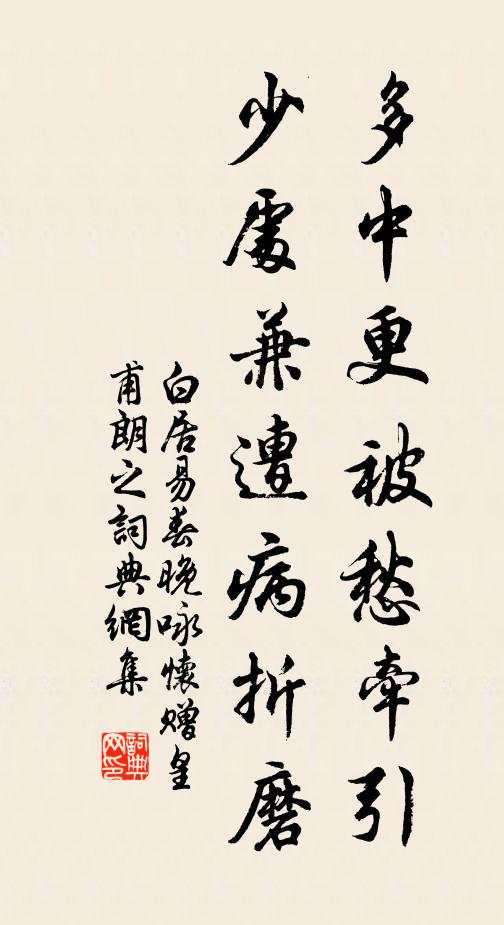 多中更被愁牽引
少處兼遭病折磨
白居易春晚咏懷贈皇
甫朗之詞典網集
詞典网印